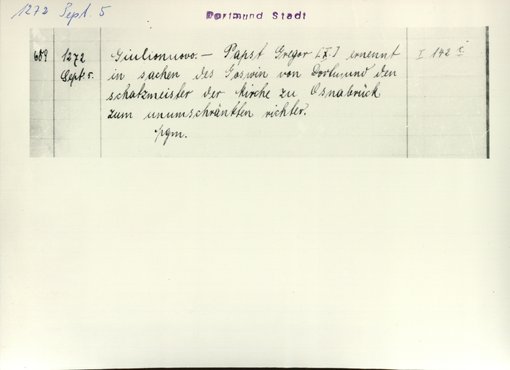 1272 Sept. 5
Dortmund Stadt
689 1272 Giulionuovo. — Papst Gregor [X.] ernennt I 142
Sept. 5. in sachen des Goswin von Dortmund den
schatzmeister der kirche zu Osnabrück
zum unumschränkten richter.
pgm.